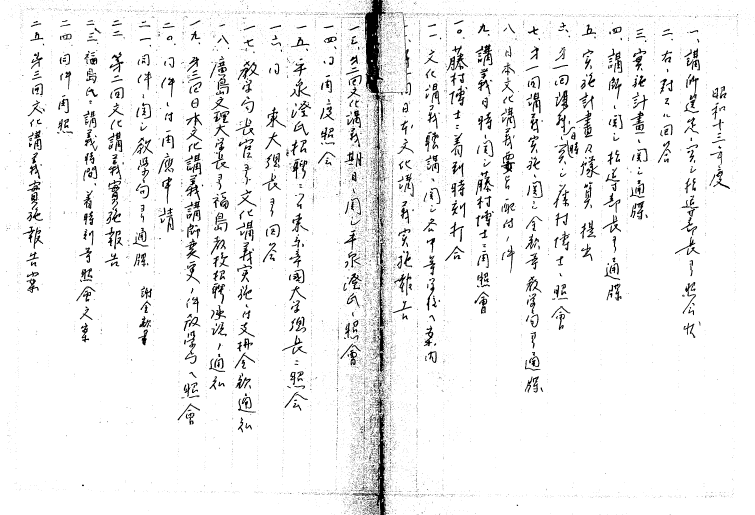 昭和十三年度
一、講師選定ニ関シ指導部長ヨリ照会状
二、右ニ対スル回答
三、実施計畫ニ関シ通牒
四、講師ニ関シ指導部長ヨリ通牒
五、実施計畫及豫算提出
六、第一回講義日時ニ関シ藤村博士ニ照會
七、第一回講義実施ニ関シ金額等教学局ヨリ通牒
八、日本文化講義要旨配付ノ件
九、講義日時ニ関シ藤村博士ニ再照會
一〇、藤村博士ニ着到時刻打合
一一、文化講義聴講ニ関シ各中等学校ヘ案内
一二、第一回日本文化講義実施報告
一三、第二回文化講義期日ニ関シ平泉澄氏ニ照會
一四、同再度照会
一五、平泉澄氏招聘ニ付東京帝国大学総長ニ照会
一六、同 東大総長ヨリ回答
一七、教学局長官ヨリ文化講義実施ニ付支拂金額通知
一八、廣島文理大学長ヨリ福島教授招聘承認ノ通知
一九、第三回日本文化講義講師変更ノ件教学局ヘ照會
二〇、同件ニ付再應申請
二一、同件ニ関シ教学局ヨリ通牒 謝金額等
二二、第二回文化講義実施報告
二三、福島氏ニ講義時間、着時刻等照會文案
二四、同件再照
二五、第三回文化講義實施報告案